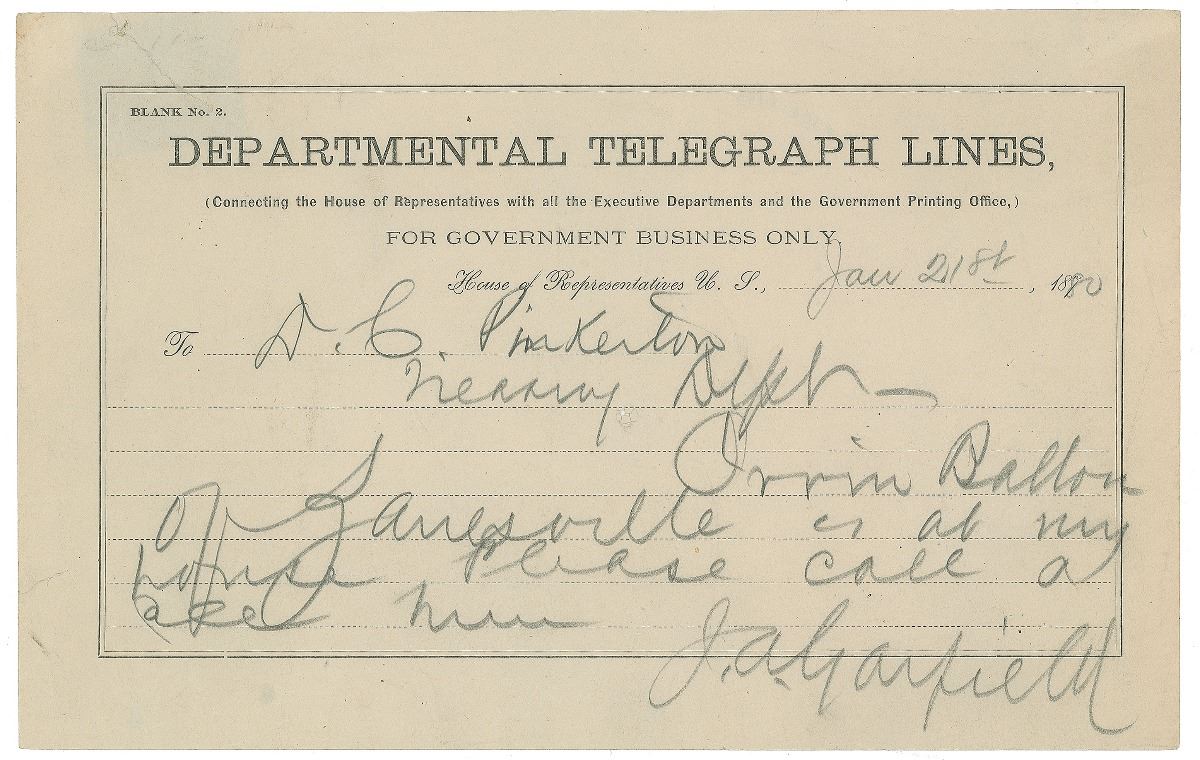 BLANK No. 2.
DEPARTMENTAL TELEGRAPH LINES,
(Connecting the House of Representatives with all the Executive Departments and the Government Printing Office,)
FOR GOVERNMENT BUSINESS ONLY.
House of Representatives U. S., Jan 21st, 1880
To D. C. Pinkerton
Dept —
Orrin Ballon
of Zanesville is at my
house Please call a
see him
J. A. Garfield